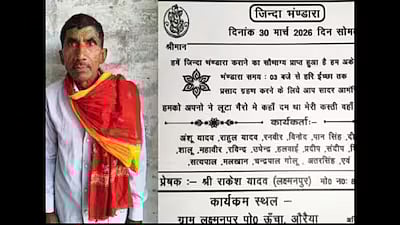 जिन्दा भंण्डारा
दिनांक 30 मार्च 2026 दिन सोम
श्रीमान
हमें जिन्दा भंण्डारा कराने का सौभाग्य प्राप्त हुआ है हम अके
भंण्डारा समय : 03 बजे से हरि ईच्छा तक
प्रसाद ग्रहण करने के लिये आप सादर आमंत्रि
हमको अपनो ने लूटा गैरो मे कहाँ दम था मेरी कस्ती वहाँ
कार्यकर्ता:
अंशू यादव,राहुल यादव, रनबीर, विनोद, पान सिंह,
शालू,,महावीर, रविन्द्र, उपेन्द्र, हलवाई, प्रदीप, संदीप,
सत्यपाल, मलखान, चन्द्रपाल गोलू , अतरसिंह, एवं
प्रेषक :- श्री राकेश यादव (लक्ष्मनपुर) मो0 न0:
कार्यकम स्थल -
ग्राम लक्ष्मनपुर पो0 ऊँचा, औरैया